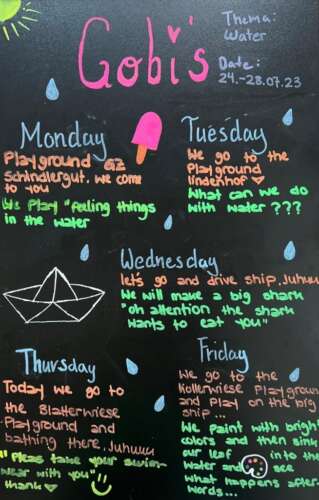 Gobi's
Thema:
Water
Date:
24.-28.07.23
Monday
Playground GZ
Schindlergut. we come
to you
We Play "feeling things
in the water
Tuesday
We go to the
Playground
lindenhof
What can we do
with water ???
Wednesday
let's go and drive ship. Juhuu
We will make a big shark
"oh attention the shark
wants to eat you"
Thursday
Today we go to
the Blatterwiese
Playground and
bathing there. Juhuuu
"Pleas take your swim-
wear with you"
thank
Friday
We go to the
Kollerwiese Playground
and Play on the big
ship...
We paint with bright
colors and then sink
our leaf into the
water and see
what happens after-
words...